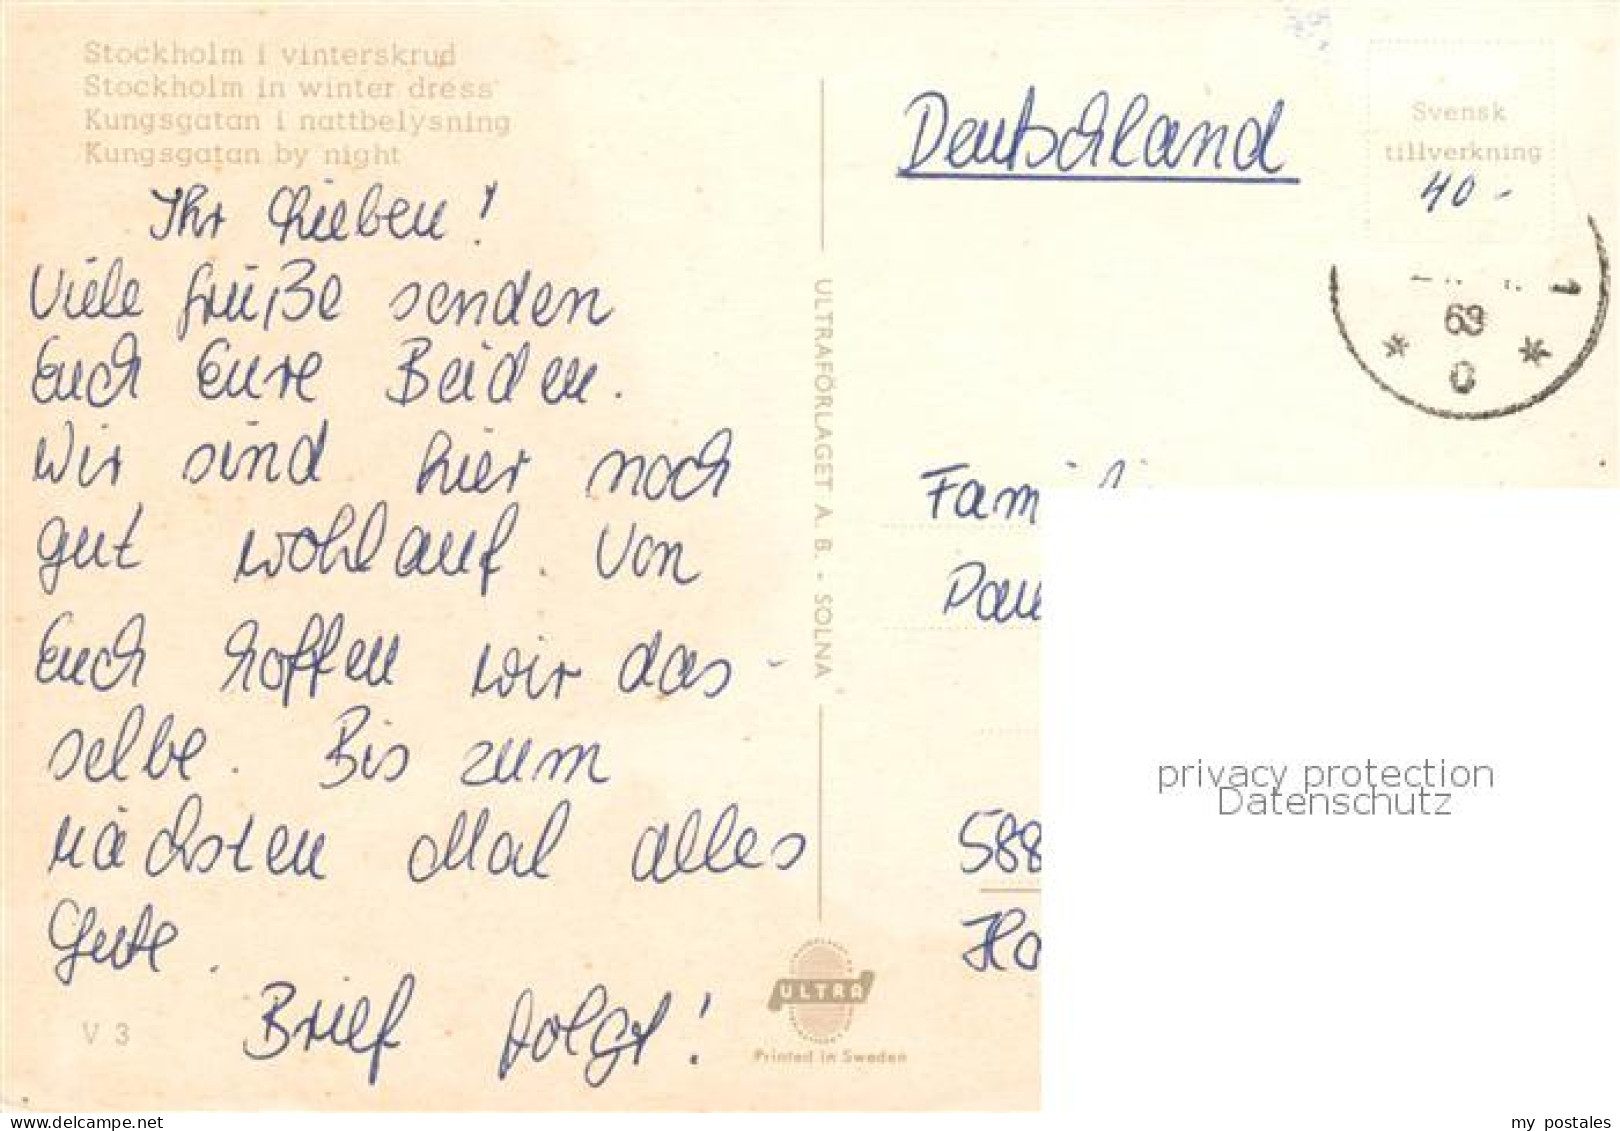 Stockholm i vinterskrud
Stockholm in winter dress
Kungsgatan i nattbelysning
Kungsgatan by night
Ihr Lieben!
Viele Grüße senden
Euch Eure Beiden.
Wir sind hier noch
gut wohlauf. Von
Euch hoffen wir das-
selbe. Bis zum
nächsten Mal alles
Gute.
Brief folgt!
V 3
ULTRAFÖRLAGET A. B. - SOLNA
ULTRA
Printed in Sweden
Deutschland
Svensk
tillverkning
40-
1
69
C
Famili
Pau
588
Ha
privacy protection
Datenschutz
my_postales